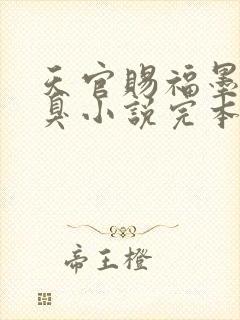 天官赐福墨
臭小说完本
帝王橙